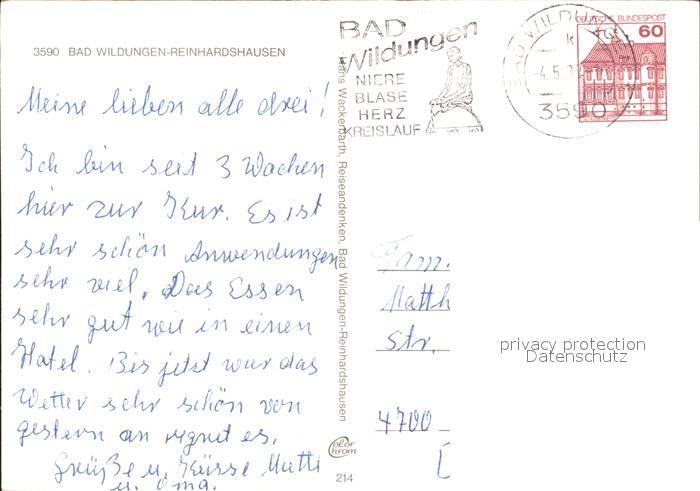 3590 BAD WILDUNGEN-REINHARDSHAUSEN
Meine lieben alle drei!
Ich bin seit 3 Wochen
hier zur Kur. Es ist
sehr schön Anwendungen
sehr viel. Das Essen
sehr gut wie in einen
Hotel. Bis jetzt war das
Wetter sehr schön von
gestern an regnet es.
Grüße u. Küsse Mutti
u. Oma.
Hans Wackerbarth, Reiseandenken, Bad Wildungen-Reinhardshausen
color chrom
214
BAD
Wildungen
NIERE
BLASE
HERZ
KREISLAUF
BAD WILDUNGEN
k
-4.5.
3590
DEUTSCHE BUNDESPOST
60
Fam.
Matth
Str.
4700
privacy protection
Datenschutz